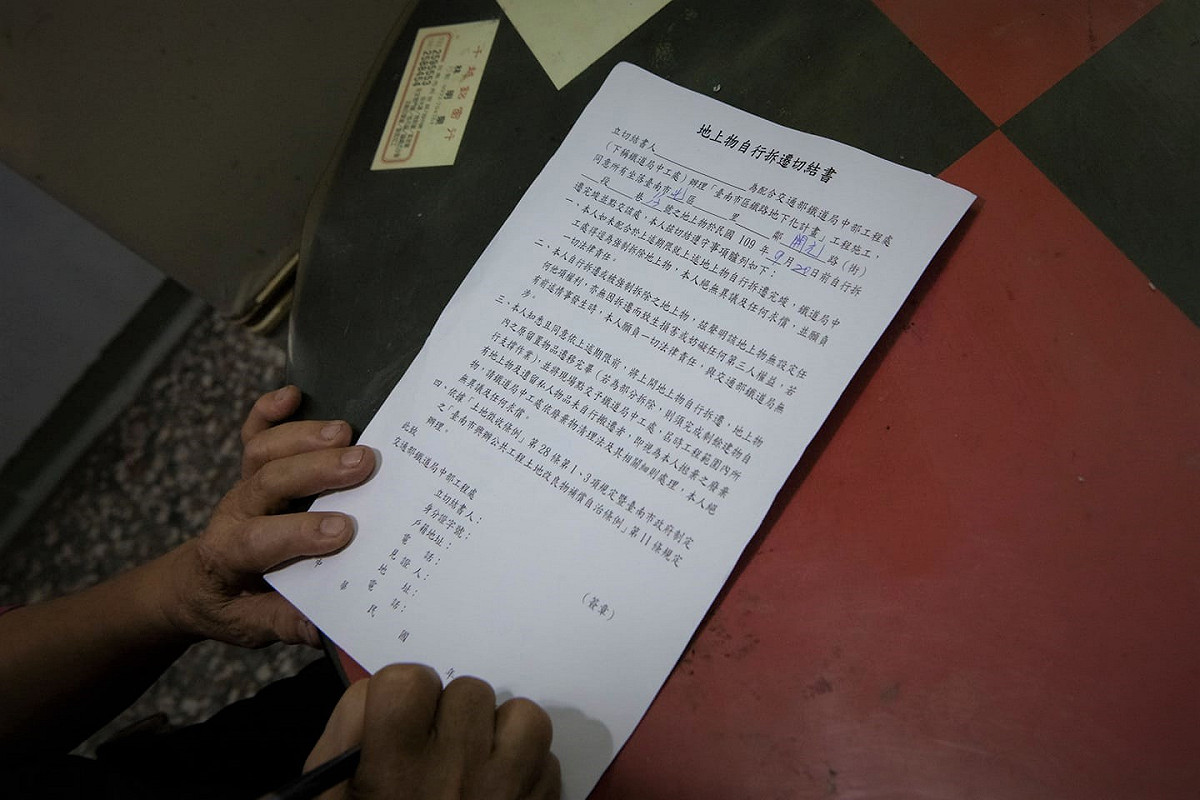 地上物自行拆遷切結書
立切結書人 為配合交通部鐵道局中部工程處
(下稱鐵道局中工處)辦理「臺南市區鐵路地下化計畫」工程施工,
同意所有坐落臺南市北區 里 鄰 開元 路(街)
段 巷 號之地上物於民國 109 年 9 月 日前自行拆
遷完竣並點交該處,本人茲切結遵守事項臚列如下:
一、本人如未配合於上述期限就上述地上物自行拆遷完竣,鐵道局中
工處得逕為強制拆除地上物,本人絕無異議及任何求償,並願負
一切法律責任。
二、本人自行拆遷或被強制拆除之地上物,茲聲明該地上物無設定任
何他項權利,亦無因拆遷而致生損害或妨礙任何第三人權益,若
有前述情事發生時,本人願負一切法律責任,與交通部鐵道局無
涉。
三、本人知悉且同意依上述期限前,將上開地上物自行拆遷,地上物
內之原留置物品遷移完畢(若為部分拆除,則須完成剩餘建物自
行支撐作業),並將現場點交予鐵道局中工處,屆時工程範圍內所
有地上物及遺留私人物品未自行搬遷者,即視為本人拋棄之廢棄
物,請鐵道局中工處依廢棄物清理法及其相關細則處理,本人絕
無異議及任何求償。
四、依據「土地徵收條例」第28條第1、3項規定暨臺南市政府制定
之「臺南市興辦公共工程土地改良物補償自治條例」第11條規定
辦理。
此致
交通部鐵道局中部工程處
立切結書人: (簽章)
身分證字號:
戶籍地址:
電 話:
見 證 人:
地 址:
電 話:
中 華 民 國 年